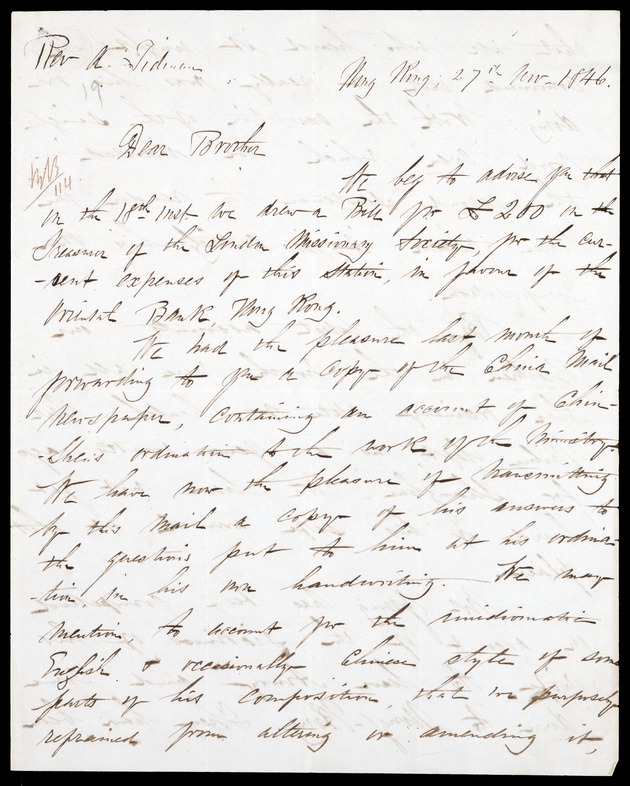 Rev A. Tidman
Hong Kong, 27th Nov. 1846.
Dear Brother
114
We beg to advise you that
on the 18th inst we drew a Bill for £200 on the
Treasurer of the London Missionary Society for the cur-
-rent expenses of this Station, in favour of the
Oriental Bank, Hong Kong.
We had the pleasure last month of
forwarding to you a copy of the China Mail
newspaper, containing an account of Chin-
-Shen's ordination to the work of the Ministry.
We have now the pleasure of transmitting
by this mail a copy of his answers to
the questions put to him at his ordina-
-tion, in his own handwriting. We may
mention, to account for the unidiomatic
English & occasionally Chinese style of some
parts of his composition, that we purposely
refrained from altering or amending it,